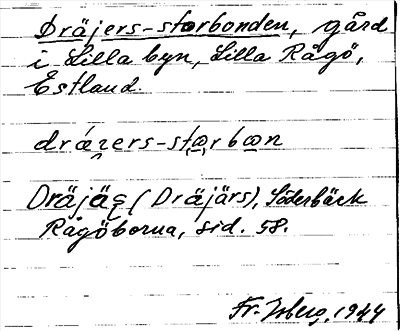 Dräjers-storbonden, gård
i Lilla byn, Lilla Rågö,
Estland.
dräʒers-storbon
Dräjäs (Dräjärs), Söderbäck
Rågöborna, sid. 58.
Fr. Isberg, 1944